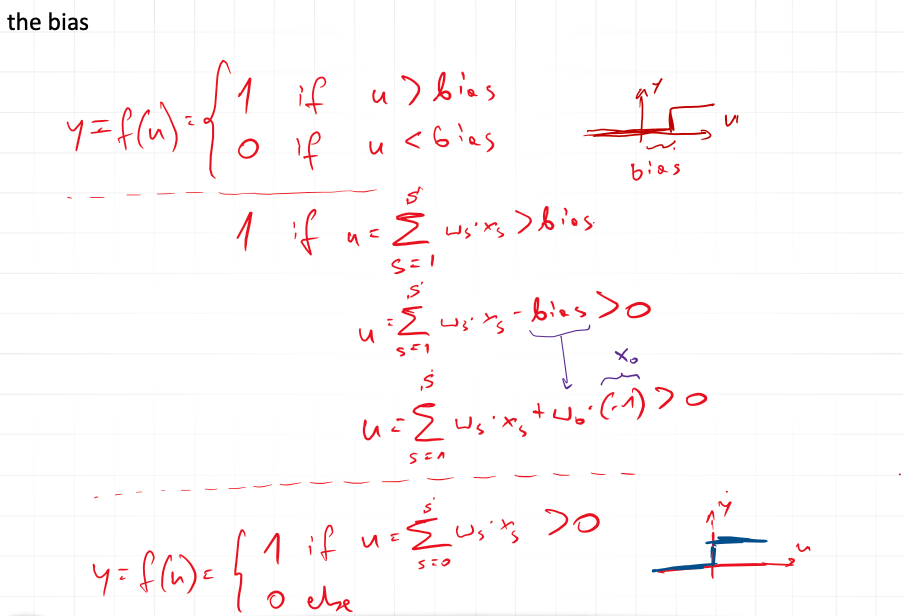 the bias
y = f(u) = { 1 if u > bias
0 if u < bias
y
u
bias
1 if u = Σ_{s=1}^{S} w_s · x_s > bias
u = Σ_{s=1}^{S} w_s · x_s - bias > 0
x_0
u = Σ_{s=1}^{S} w_s · x_s + w_0 · (-1) > 0
y = f(u) = { 1 if u = Σ_{s=0}^{S} w_s · x_s > 0
0 else
y
u